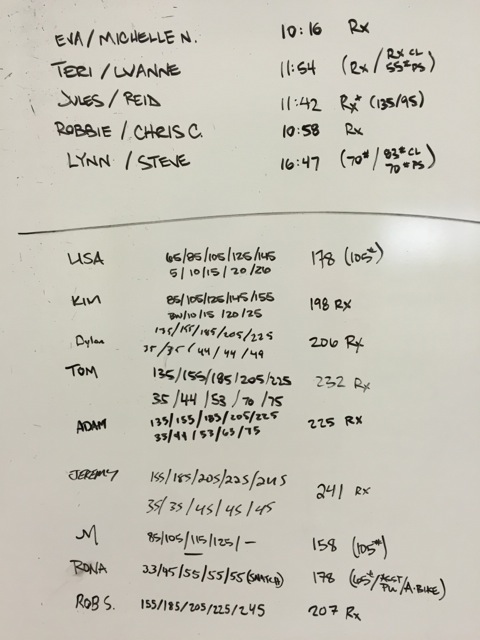 EVA / MICHELLE N. 10:16 Rx
TERI / LUANNE 11:54 (Rx / Rx CL 55# PS)
JULES / REID 11:42 Rx+ (135/95)
ROBBIE / CHRIS C. 10:58 Rx
LYNN / STEVE 16:47 (70# / 83# CL 70# PS)
LISA 65/85/105/125/145 178 (105#)
5/10/15/20/26
KIM 85/105/125/145/155 198 Rx
BW/10/15/20/25
Dylan 135/155/185/205/225 206 Rx
35/35/44/44/49
TOM 135/155/185/205/225 232 Rx
35/44/53/70/75
ADAM 135/155/185/205/225 225 Rx
35/44/53/63/75
JEREMY 155/185/205/225/245 241 Rx
35/35/45/45/45
M 85/105/115/125/— 158 (105#)
RONA 33/45/55/55/55 (SNATCH) 178 (65#/ASST PU/A.BIKE)
ROB S. 155/185/205/225/245 207 Rx